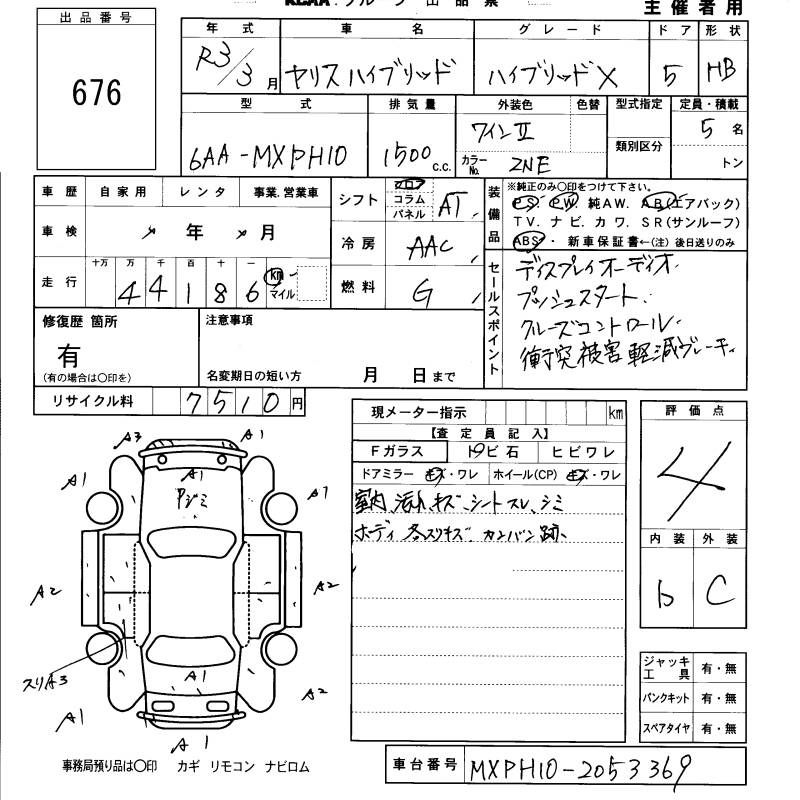 KCAA グループ 出品票
主催者用
出品番号
676
年式 車名 グレード ドア 形状
R3/3月 ヤリスハイブリッド ハイブリッドX 5 HB
型式 排気量 外装色 色替 型式指定 定員・積載
6AA-MXPH10 1500c.c. ワインII 類別区分 5名
カラーNo. 2NE トン
車歴 自家用 レンタ 事業.営業車
車検 年 月
走行 十万 万 千 百 十 一
4 4 1 8 6 km マイル
シフト フロア コラム パネル AT
冷房 AAC
燃料 G
装備品
※純正のみ〇印をつけて下さい。
PS PW 純AW. AB(エアバック)
TV. ナビ. カワ. SR(サンルーフ)
ABS・ 新車保証書←(注) 後日送りのみ
セールスポイント
ディスプレイオーディオ.
プッシュスタート.
クルーズコントロール.
衝突被害軽減ブレーキ.
修復歴 箇所
有
(有の場合は〇印を)
注意事項
名変期日の短い方 月 日まで
リサイクル料 7510円
現メーター指示 km
【査定員記入】
Fガラス トビ石 ヒビワレ
ドアミラー キズ・ワレ ホイール(CP) キズ・ワレ
室内、汚れ、キズ、シートスレ、シミ
ボディ 各スリキズ カンバン跡、
評価点
4
内装 外装
b C
A3 A1
A1 A1 A1
アジミ
A2 A2
スリA3
A1 A1 A2
A1
ジャッキ工具 有・無
パンクキット 有・無
スペアタイヤ 有・無
事務局預り品は〇印 カギ リモコン ナビロム
車台番号 MXPH10-2053369